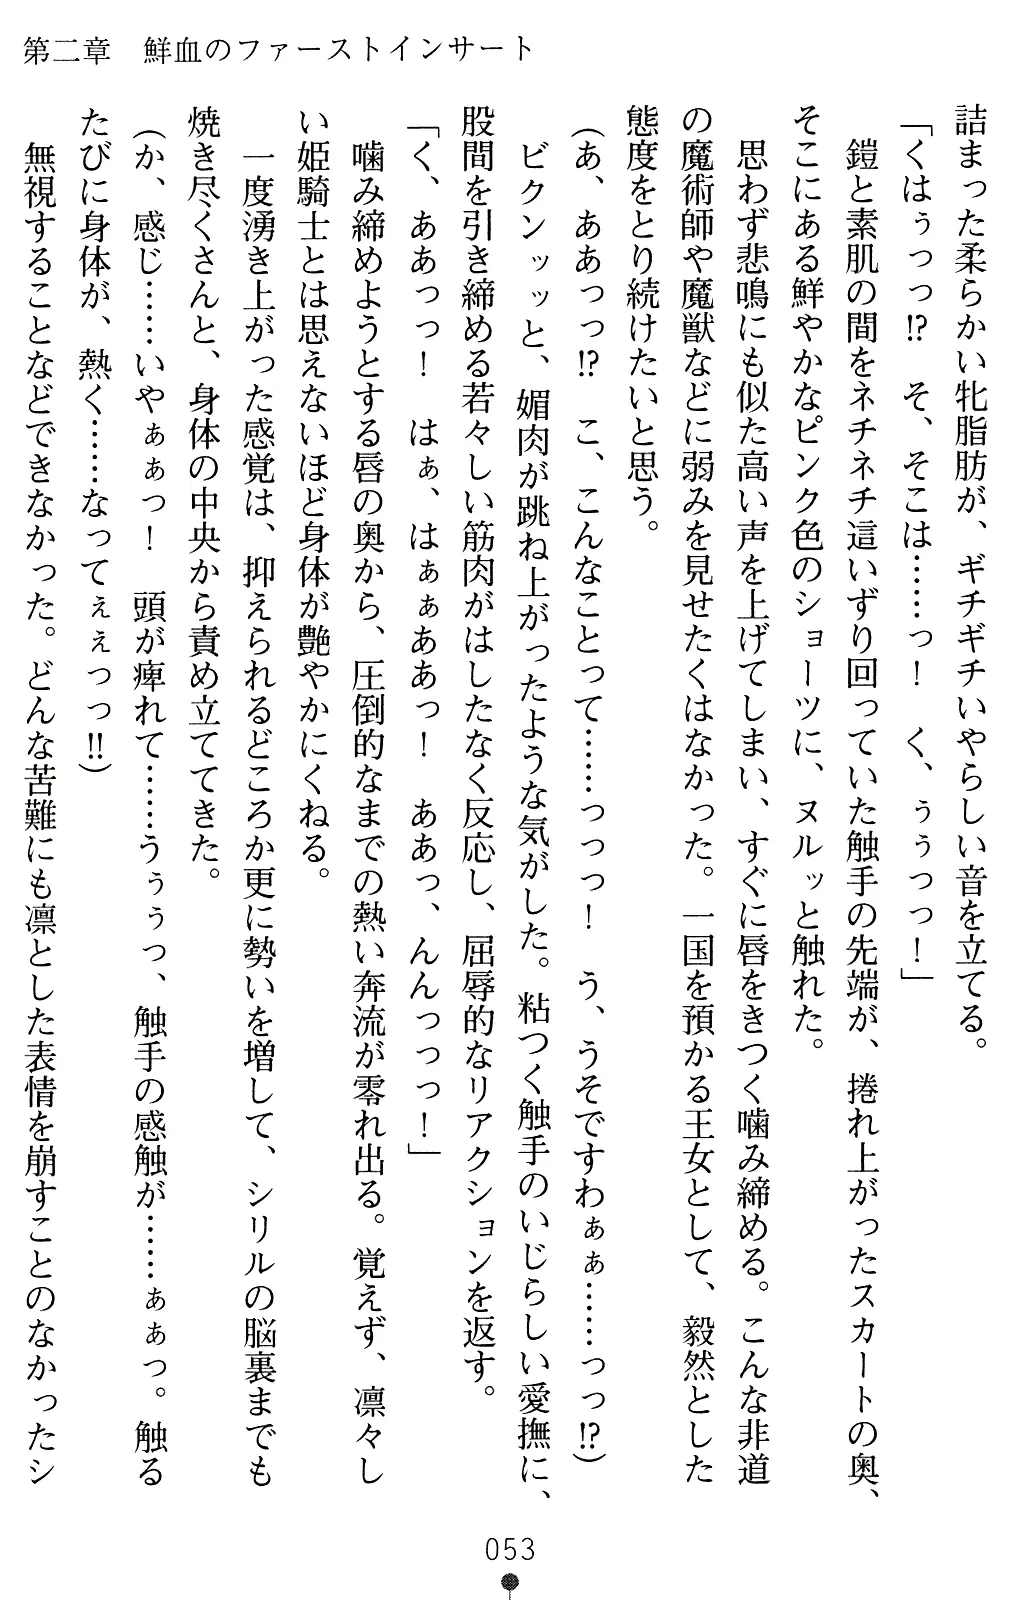 第二章　鮮血のファーストインサート
詰まった柔らかい牝脂肪が、ギチギチいやらしい音を立てる。
「くはぅっっ!?　そ、そこは……っ！　く、ぅぅっっ！」
鎧と素肌の間をネチネチ這いずり回っていた触手の先端が、捲れ上がったスカートの奥、
そこにある鮮やかなピンク色のショーツに、ヌルッと触れた。
思わず悲鳴にも似た高い声を上げてしまい、すぐに唇をきつく噛み締める。こんな非道
の魔術師や魔獣などに弱みを見せたくはなかった。一国を預かる王女として、毅然とした
態度をとり続けたいと思う。
（あ、ああっっ!?　こ、こんなことって……っっっ！　う、うそですわぁぁ……っっ!?）
ビクンッッと、媚肉が跳ね上がったような気がした。粘つく触手のいじらしい愛撫に、
股間を引き締める若々しい筋肉がはしたなく反応し、屈辱的なリアクションを返す。
「く、ああっっ！　はぁ、はぁぁああっ！　ああっ、んんっっっ！」
噛み締めようとする唇の奥から、圧倒的なまでの熱い奔流が零れ出る。覚えず、凛々し
い姫騎士とは思えないほど身体が艶やかにくねる。
一度湧き上がった感覚は、抑えられるどころか更に勢いを増して、シリルの脳裏までも
焼き尽くさんと、身体の中央から責め立ててきた。
（か、感じ……いやぁぁっ！　頭が痺れて……うぅぅっ、触手の感触が……ぁぁっ。触る
たびに身体が、熱く……なってぇぇっっ!!）
無視することなどできなかった。どんな苦難にも凛とした表情を崩すことのなかったシ
053